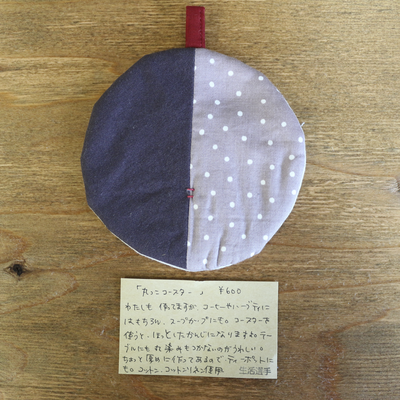 「丸っこコースター」 ¥600
わたしも 使ってますが、コーヒーやハーブティに
はもちろん、スープカップにも。コースターを
使うと、ほっとしたかんじになりますね。テー
ブルにも 水滴もつかないのがうれしい。
ちょっと厚めに作ってあるので、ティーポットに
も。コットン、コットンリネン使用
生活道季